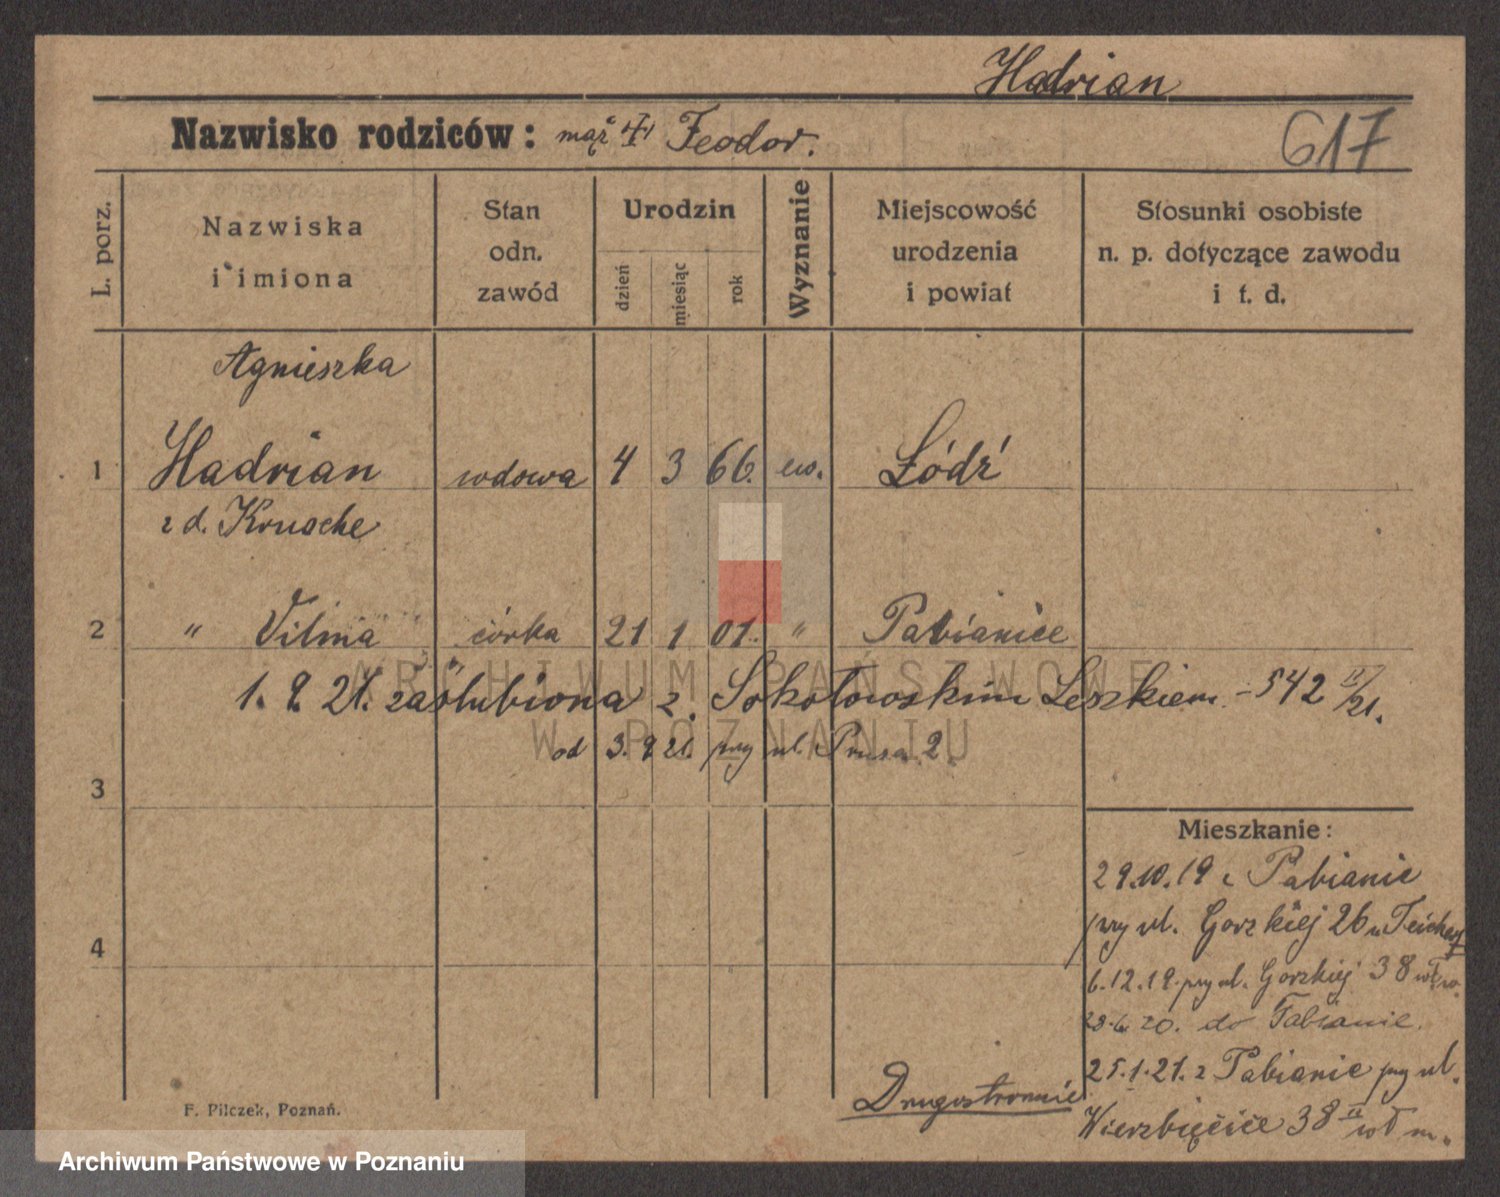 Hadrian
Nazwisko rodziców: mąż Feodor.
617
L. porz.
Nazwiska
i imiona
Stan
odn.
zawód
Urodzin
dzień
miesiąc
rok
Wyznanie
Miejscowość
urodzenia
i powiat
Stosunki osobiste
n. p. dotyczące zawodu
i t. d.
Agnieszka
1 Hadrian wdowa 4 3 66. ew. Łódź
z d. Krusche
2 " Vilma córka 21 1 01. " Pabianice
1. 9. 21. zaślubiona z Sokołowskim Leszkiem - 542 /21.
od 3. 9 21. przy ul. Prusa 2.
3
Mieszkanie:
29.10.19 z Pabianic
przy ul. Gorzkiej 26 u
4
6.12.19. przy ul. Gorzkiej 38
28.6.20. do Pabianic.
25.1.21. z Pabianic przy ul.
Drugostronnie
Wierzbięcice 38 II
F. Pilczek, Poznań.
ARCHIWUM PAŃSTWOWE
W POZNANIU
Archiwum Państwowe w Poznaniu